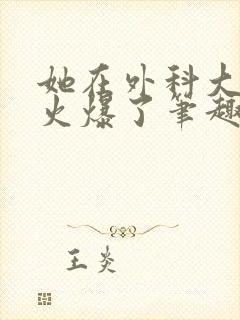 她在外科大
火爆了笔趣
王炎